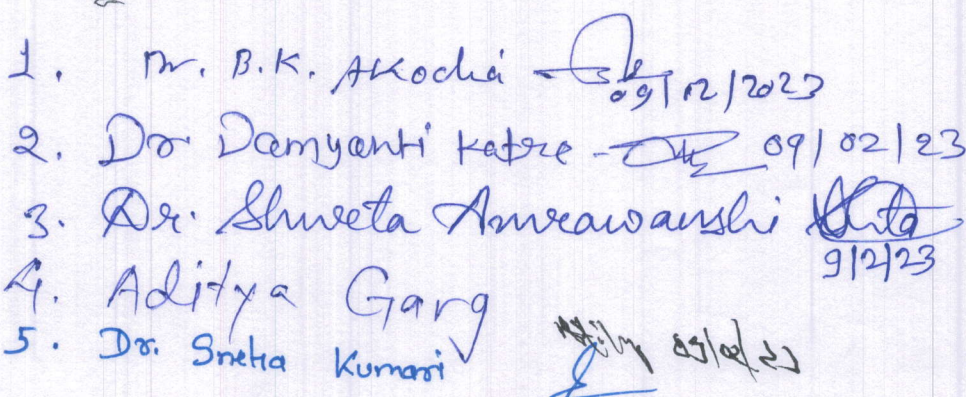 1. Dr. B.K. Akodia 09/02/2023
2. Dr Damyanti Katre - 09/02/23
3. Dr. Shweta Amrawanshi
9/2/23
4. Aditya Garg
09/02/23
5. Dr. Sneha Kumari